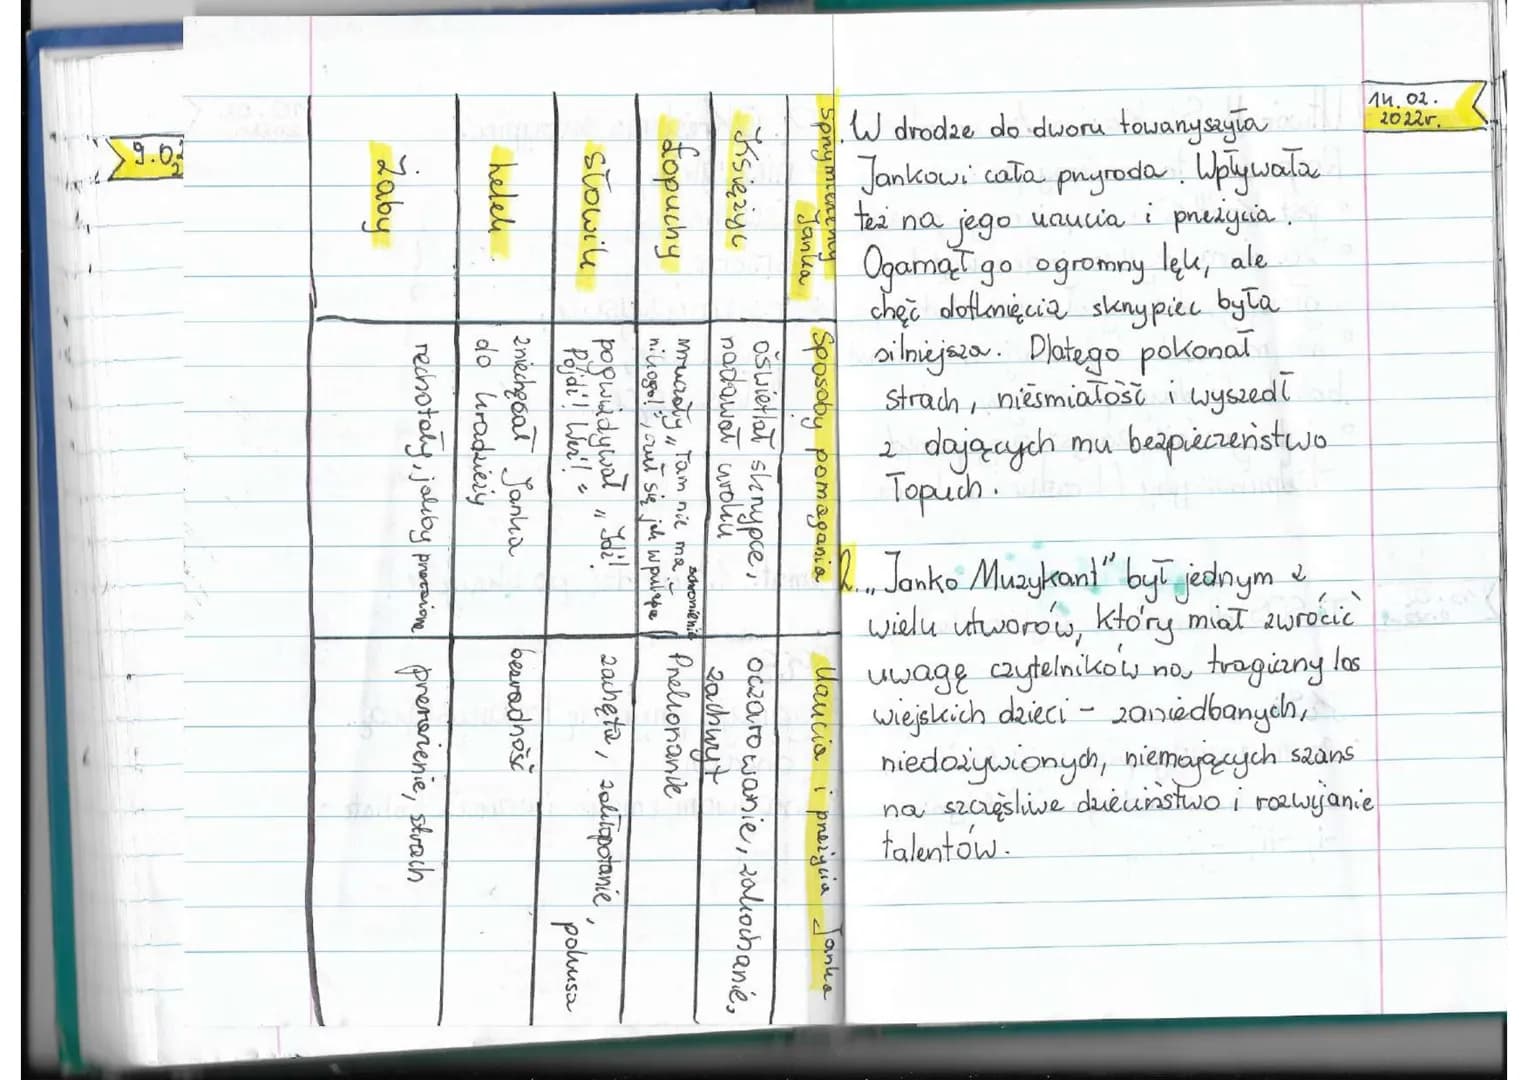 9.02
Sprzymierzeńcy Janka
Sposoby pomagania
Uczucia i przeżycia Janka
Księżyc
oświetlał skrzypce,
nadawał uroku
oczarowanie, zakochanie,
zachwyt
Łopuchy
mruczały „Tam nie ma
nikogo!”,
schronienie
Przekonanie
Słowik
pogwizdywał „Idź!
Pójdź! Weź!”
zachęta, zakłopotanie,
pokusa
Lelek
zniechęcał Janka
do kradzieży
bezradność
Żaby
rechotały, jakby przerażone
przerażenie, strach
14.02.
2022r.
W drodze do dworu towarzyszyła
Jankowi cała przyroda. Wpływała
też na jego uczucia i przeżycia.
Ogarnął go ogromny lęk, ale
chęć dotknięcia skrzypiec była
silniejsza. Dlatego pokonał
strach, nieśmiałość i wyszedł
z dających mu bezpieczeństwo
łopuch.
2. „Janko Muzykant” był jednym z
wielu utworów, który miał zwrócić
uwagę czytelników na tragiczny los
wiejskich dzieci - zaniedbanych,
niedożywionych, niemających szans
na szczęśliwe dzieciństwo i rozwijanie
talentów.